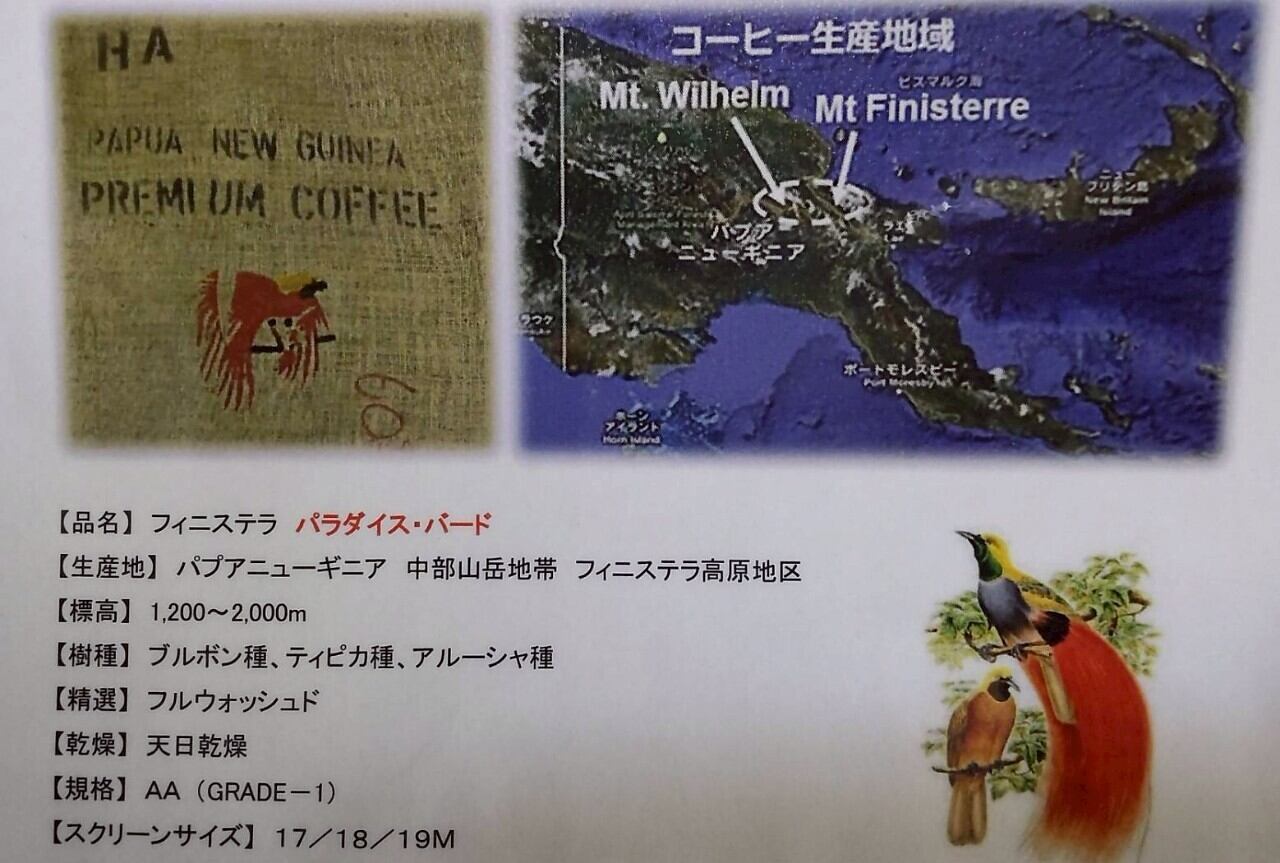 HA
PAPUA NEW GUINEA
PREMIUM COFFEE
コーヒー生産地域
ビスマルク海
Mt. Wilhelm
Mt Finisterre
ニュー
ブリテン島
New Britain
Island
パプア
ニューギニア
ラエ
Lae
ポートモレスビー
Port Moresby
ホーン
アイランド
Horn Island
【品名】 フィニステラ パラダイス・バード
【生産地】 パプアニューギニア 中部山岳地帯 フィニステラ高原地区
【標高】 1,200～2,000m
【樹種】 ブルボン種、ティピカ種、アルーシャ種
【精選】 フルウォッシュド
【乾燥】 天日乾燥
【規格】 AA （GRADE－1）
【スクリーンサイズ】 17／18／19M